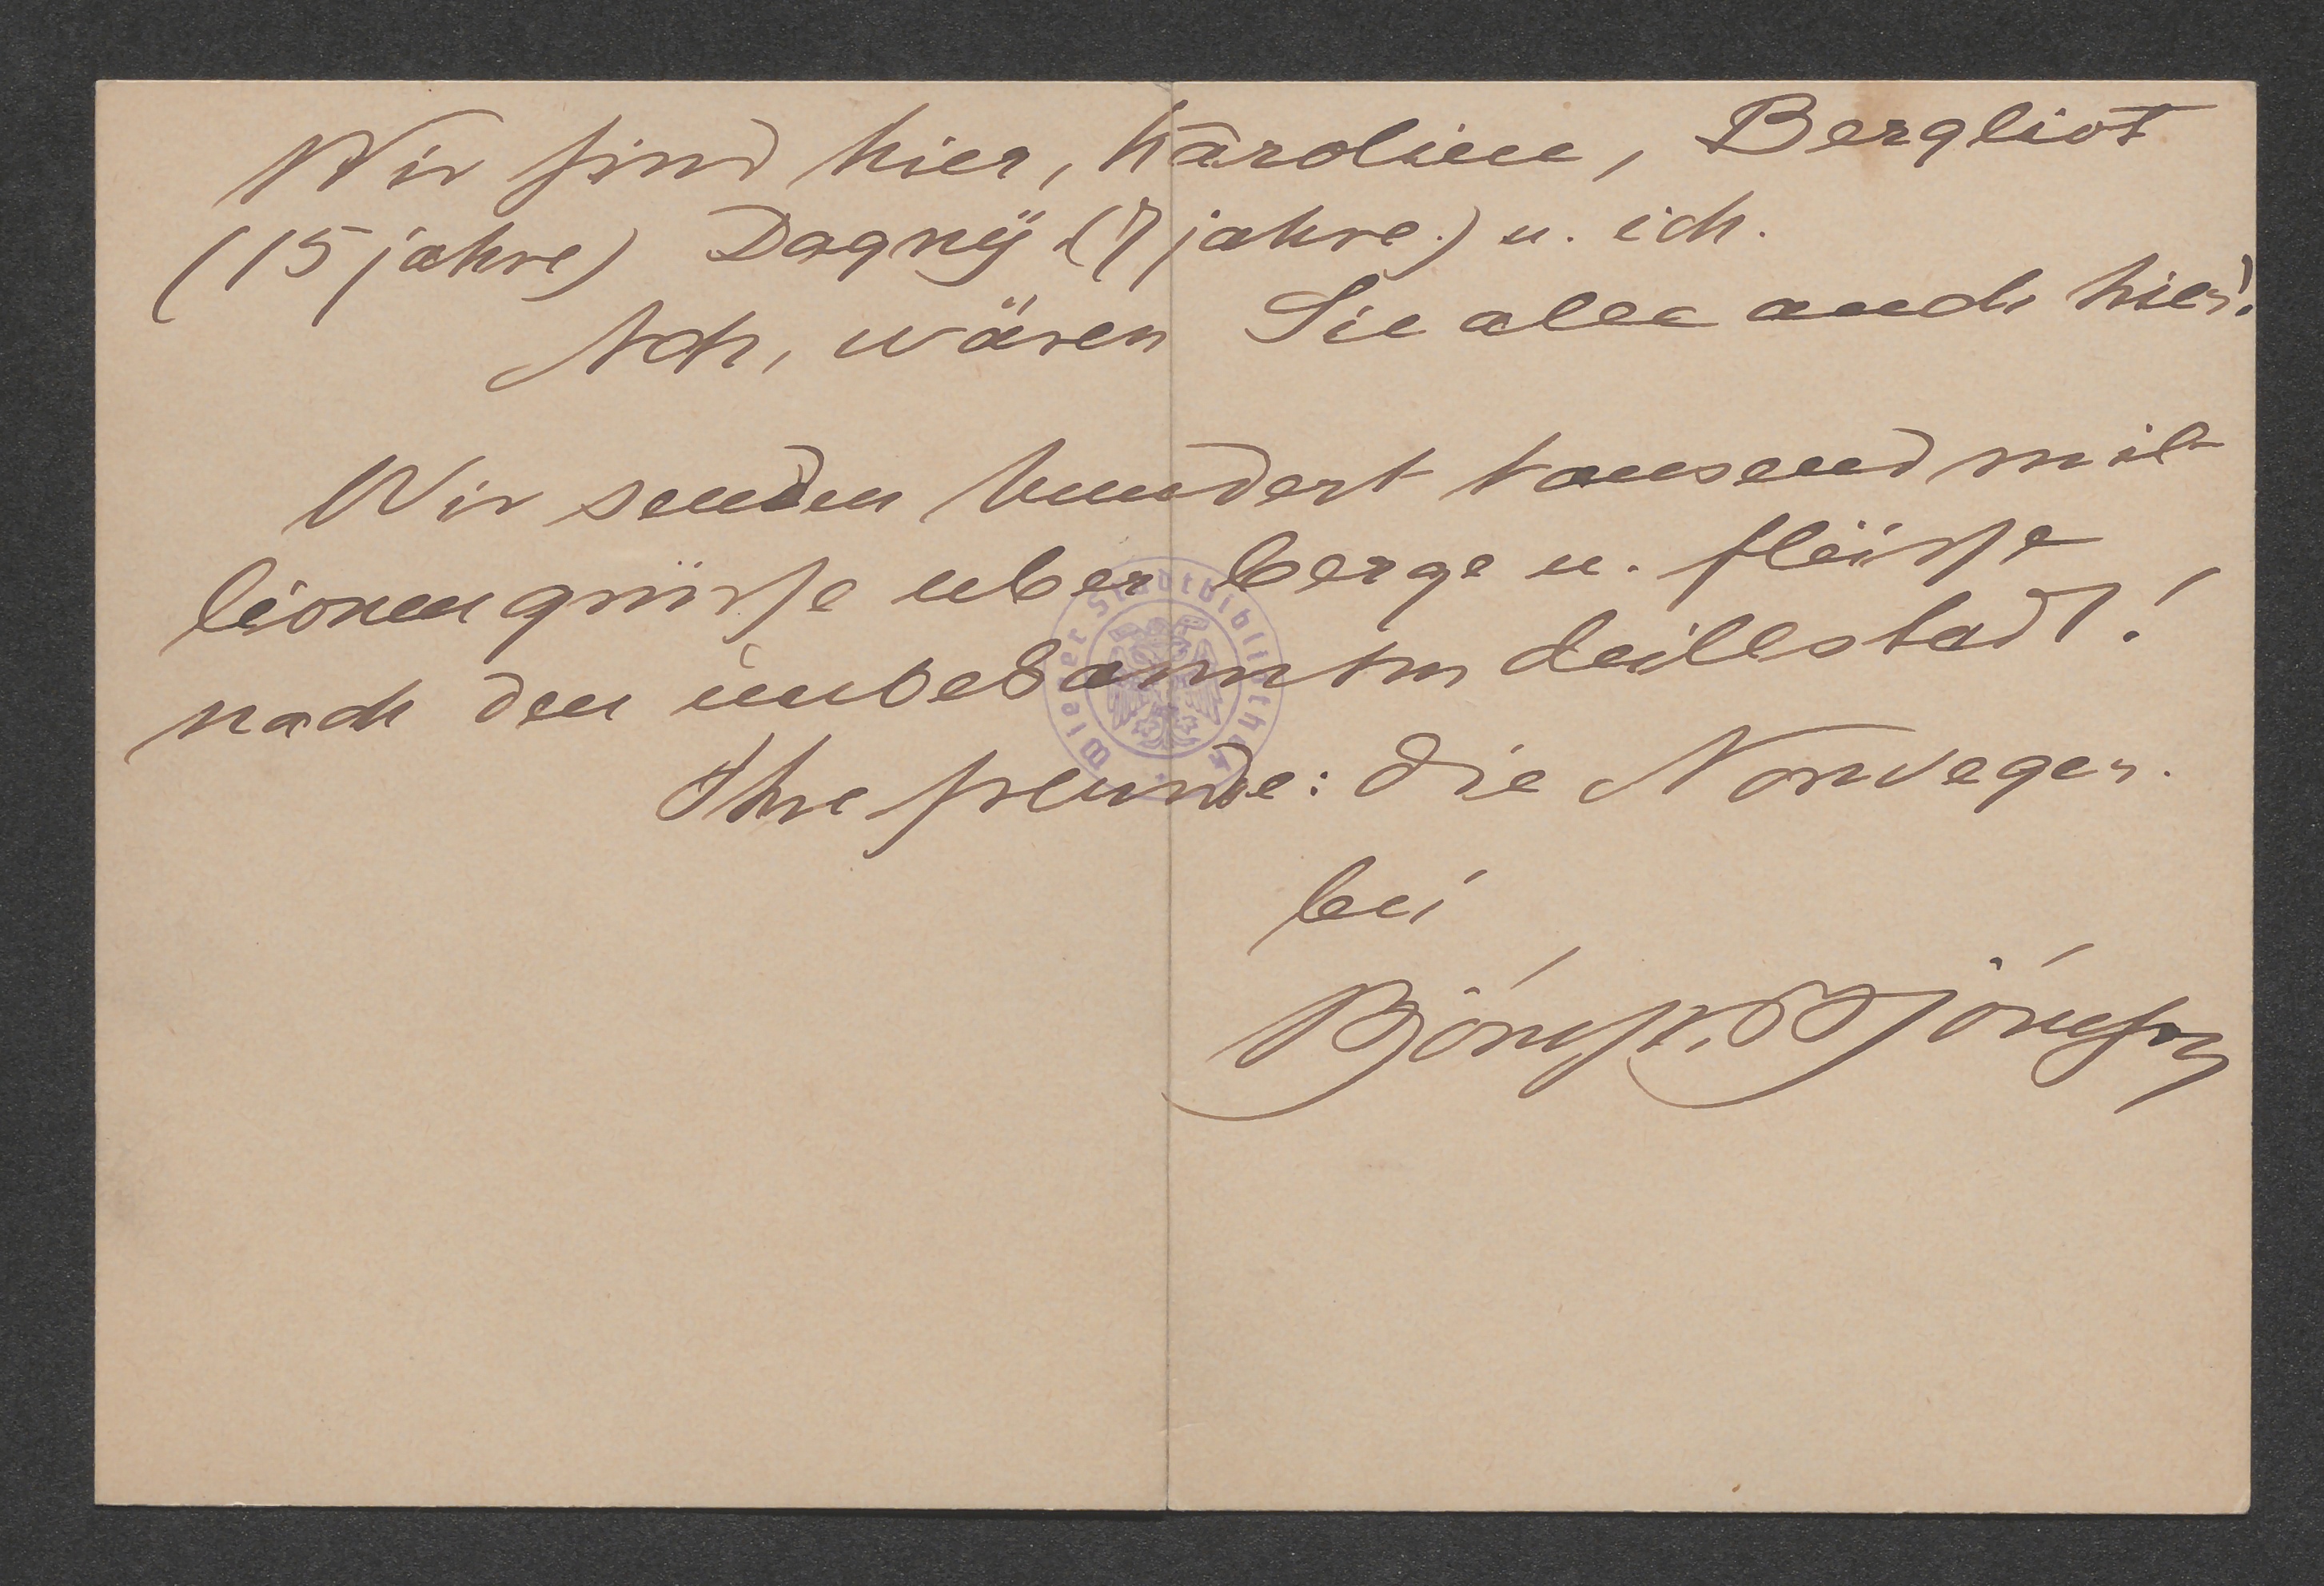 Wir sind hier, Karoline, Bergliot
(15 jahre) Dagny (7 jahre) u. ich.
Ach, wären Sie alle auch hier!
Wir senden hundert tausend mil-
lionen grüsse uber berge u. flüsse
nach den unbekannten
Ihre freunde: die Norweger.
bei
Björnst. Björnson
Wiener Stadtbibliothek